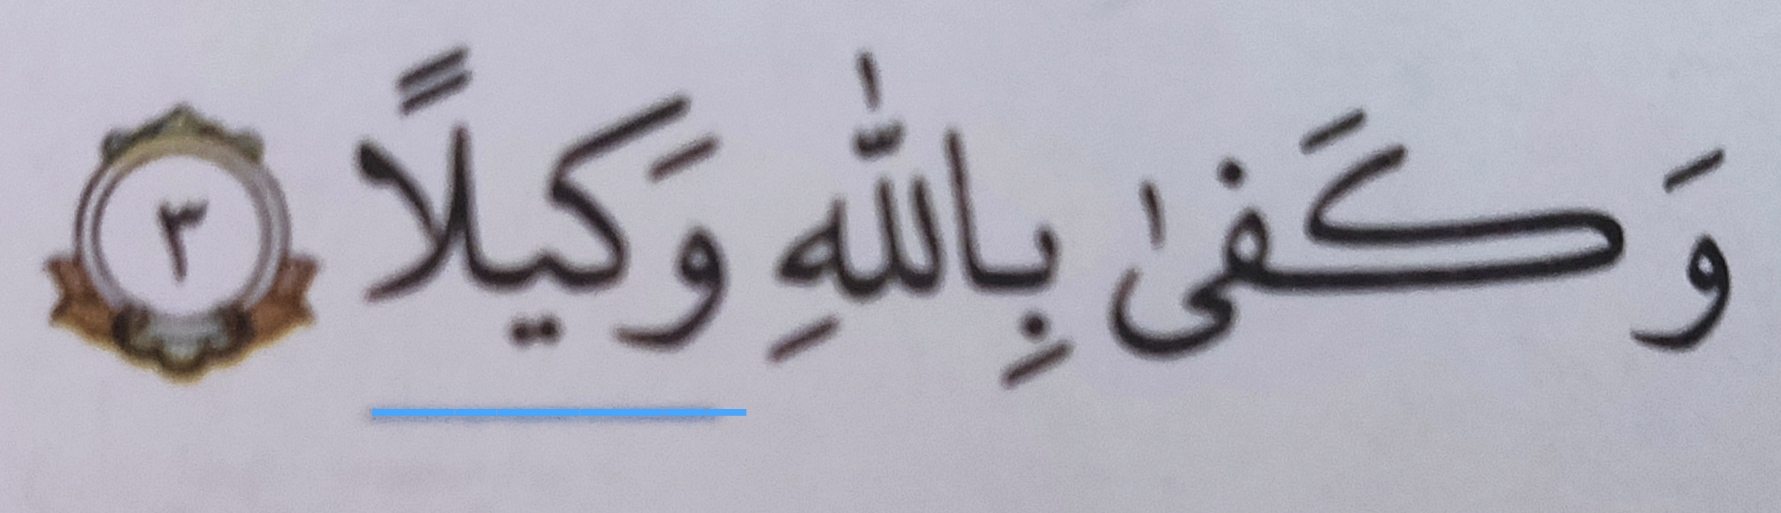 وَكَفىٰ بِاللّٰهِ وَكيلًا ٣